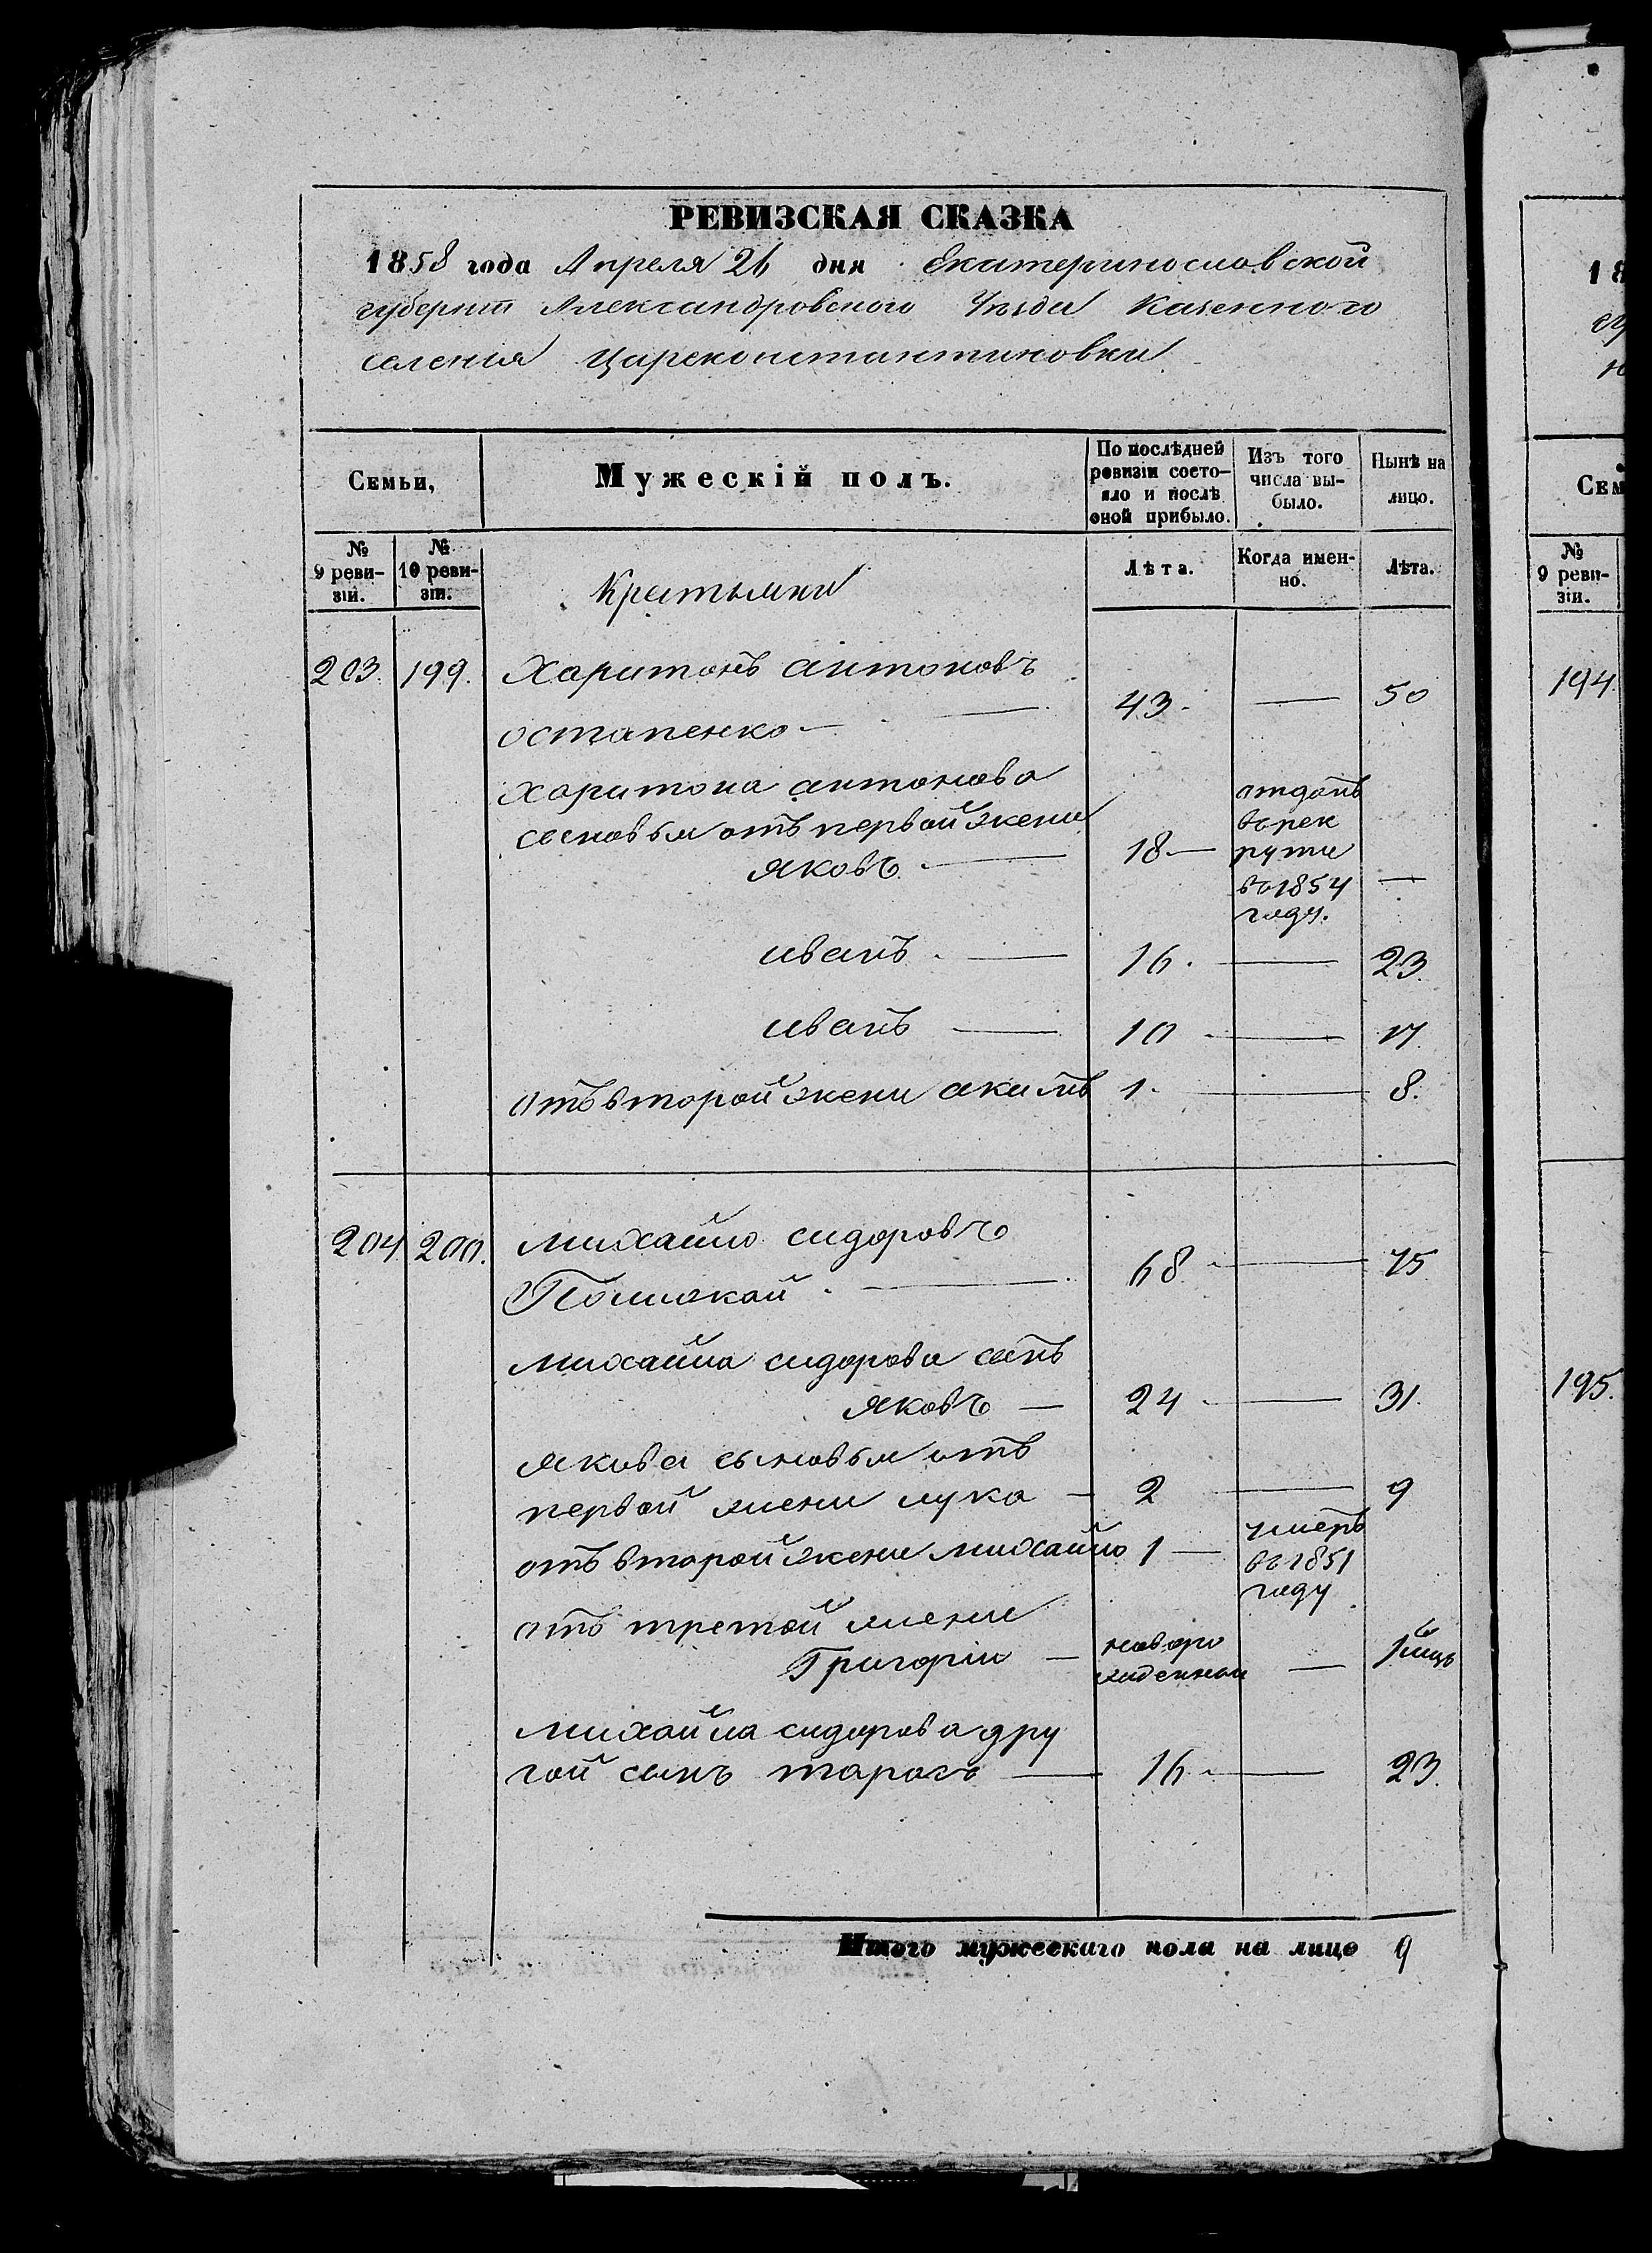 РЕВИЗСКАЯ СКАЗКА
1858 года Апреля 26 дня Екатеринославской
губернии Александровского Уезда Казенного
селения Цареконстантиновки
Семьи,
Мужескій полъ.
По послѣдней ревизіи состояло и послѣ оной прибыло.
Изъ того числа выбыло.
Нынѣ на лицо.
№ 9 ревизіи.
№ 10 ревизіи.
Крестьяни
Лѣта.
Когда именно.
Лѣта.
203. 199. Харитонъ антоновъ
остапенко — 43. — 50
Харитона антонова
сыновья отъ первой жены
яковъ — 18 — отданъ въ рекруты въ 1854 году. —
иванъ — 16. — 23.
иванъ — 10 — 17.
отъ второй жены акимъ 1. — 8.
204 200. михайло сидоровъ
68 — 75
михайла сидорова сынъ
яковъ — 24 — 31.
якова сыновья отъ
первой жены лука — 2 — 9
отъ второй жены михайло 1 — умеръ въ 1851 году
отъ третей жены
Григорій — новорожденной —
михайла сидорова дру
гой сынъ тарасъ — 16 — 23.
Итого мужескаго пола на лицо 9
18
Сем
№
9 реви-
зіи.
194.
195.